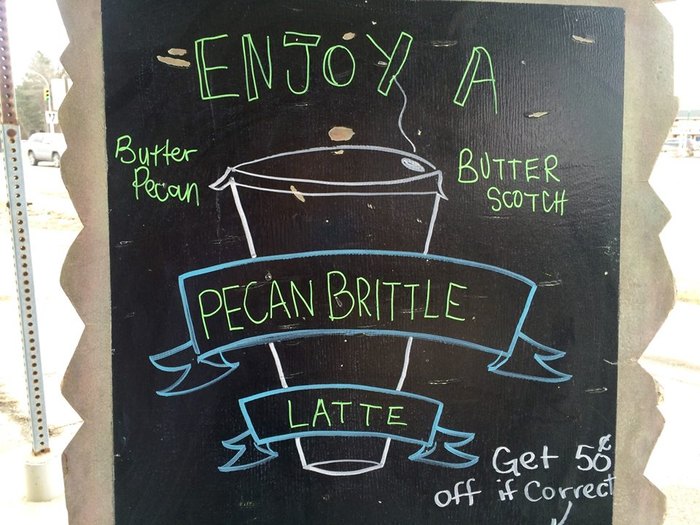 ENJOY A
Butter
Pecan
BUTTER
SCOTCH
PECAN BRITTLE
LATTE
Get 50¢
off if Correct